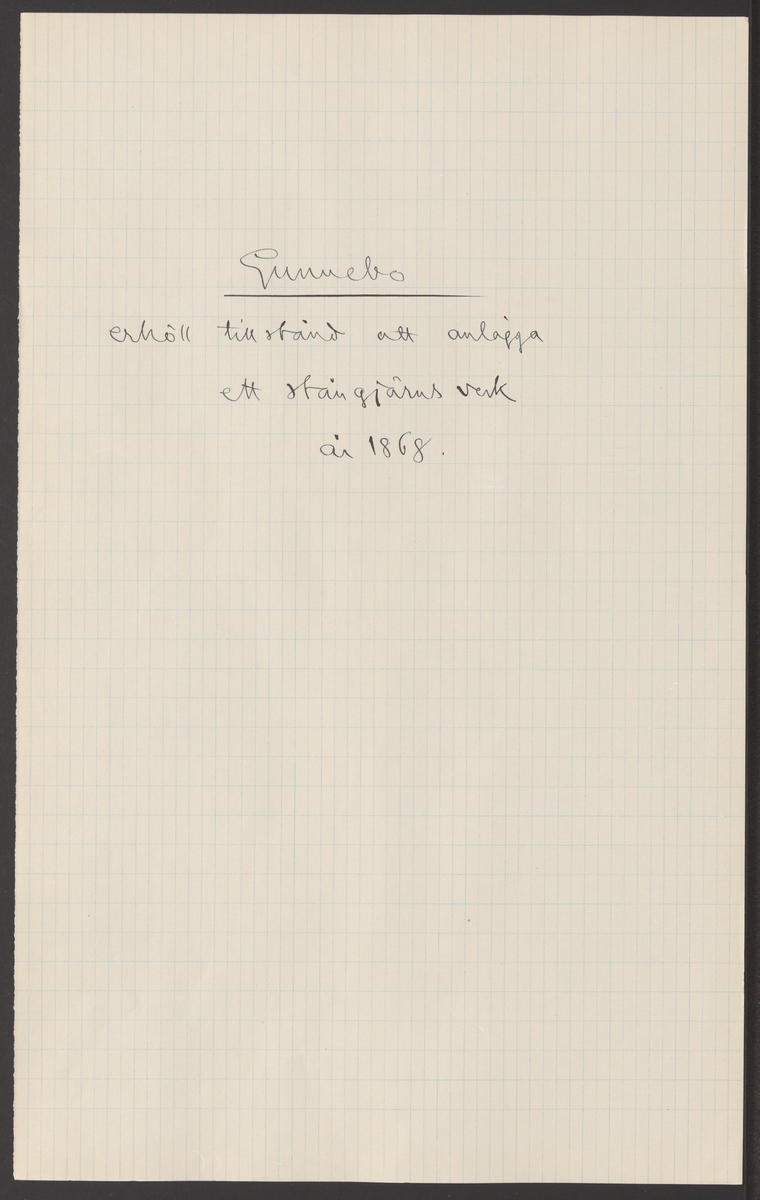 Gunnebo
erhöll tillstånd att anlägga
ett stångjärnsverk
år 1868.